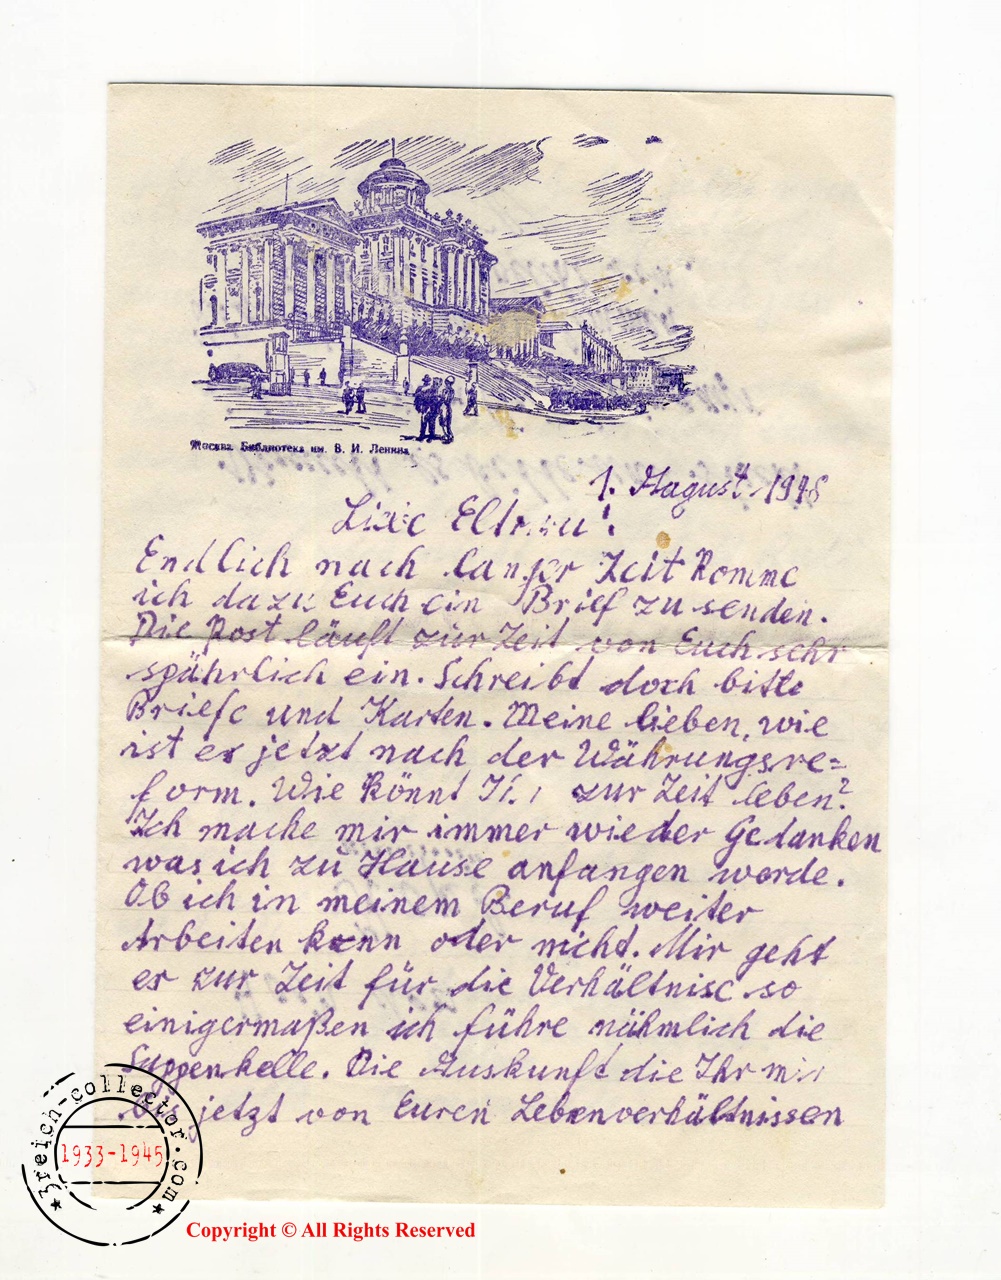 Москва. Библиотека им. В. И. Ленина
1. August 1948
Liebe Eltern!
Endlich nach langer Zeit komme
ich dazu Euch ein Brief zu senden.
Die Post läuft zur Zeit von Euch sehr
spährlich ein. Schreibt doch bitte
Briefe und Karten. Meine lieben, wie
ist es jetzt nach der Währungsre=
form. Wie könnt Ihr zur Zeit leben?
Ich mache mir immer wieder Gedanken
was ich zu Hause anfangen werde.
Ob ich in meinem Beruf weiter
Arbeiten kann oder nicht. Mir geht
es zur Zeit für die Verhältnise so
einigermaßen ich führe nähmlich die
Suppenkelle. Die Auskunft die Ihr mir
bis jetzt von Euren Lebenverhältnissen
3reich-collector.com
1933-1945
Copyright © All Rights Reserved